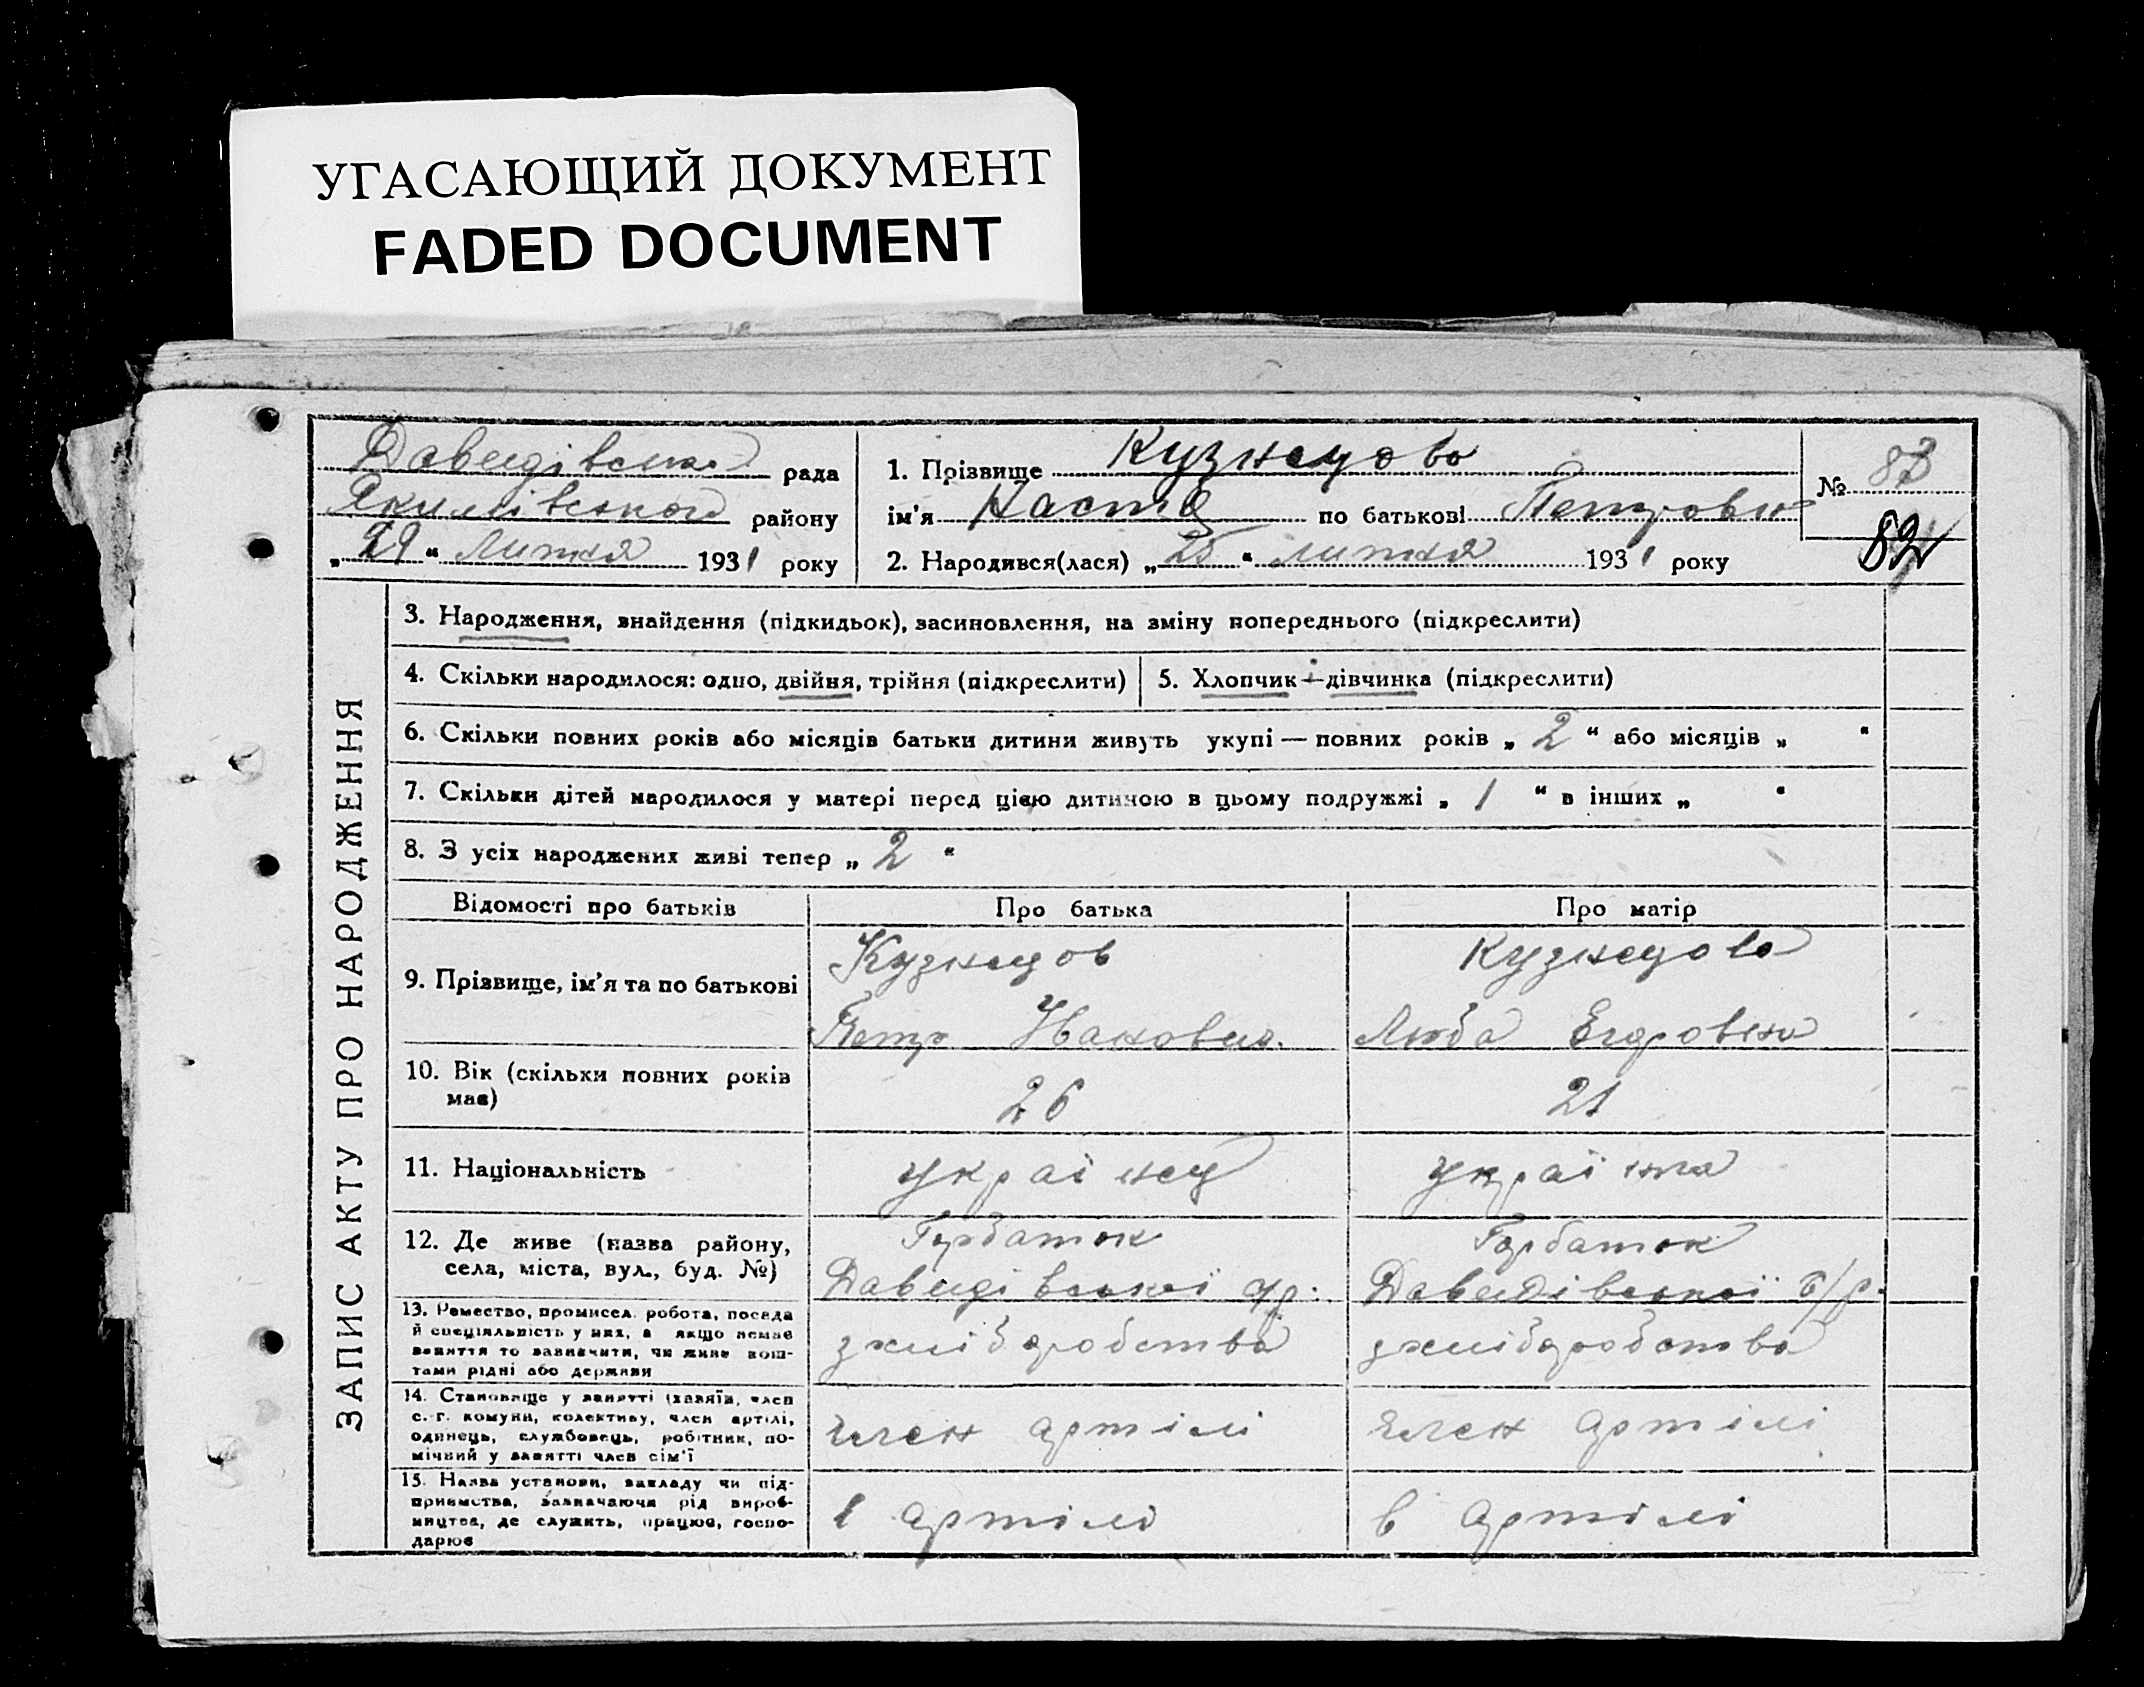 УГАСАЮЩИЙ ДОКУМЕНТ
FADED DOCUMENT
Давидівська рада
Якимівського району
„29“ Липня 1931 року
1. Прізвище Кузнецова
ім'я Настя по батькові Петровна
2. Народився(лася) „25“ липня 1931 року
№ 83
82
ЗАПИС АКТУ ПРО НАРОДЖЕННЯ
3. Народження, знайдення (підкидьок), засиновлення, на зміну попереднього (підкреслити)
4. Скільки народилося: одно, двійня, трійня (підкреслити)
5. Хлопчик і дівчинка (підкреслити)
6. Скільки повних років або місяців батьки дитини живуть укупі — повних років „2“ або місяців „ “
7. Скільки дітей народилося у матері перед цією дитиною в цьому подружжі „1“ в інших „ “
8. З усіх народжених живі тепер „2“
Відомості про батьків
Про батька
Про матір
9. Прізвище, ім'я та по батькові
Кузнецов
Петр Иванович
Кузнецова
Люба Егоровна
10. Вік (скільки повних років
має)
26
21
11. Національність
українец
українка
12. Де живе (назва району,
села, міста, вул., буд. №)
Горбаток
Давидівської
Горбаток
Давидівської с/р.
13. Ремество, промисел, робота, посада
й спеціяльність у них, а якщо немає
заняття то зазначити, чи живе кош-
тами рідні або держави
з хліборобства
з хліборобства
14. Становище у занятті (хазяїн, член
с.-г. комуни, колективу, член артілі,
одинець, службовець, робітник, по-
мічний у занятті член сім'ї
член артілі
член артілі
15. Назва установи, закладу чи під-
приємства, зазначаючи рід вироб-
ництва, де служить, працює, госпо-
дарює
в артілі
в артілі